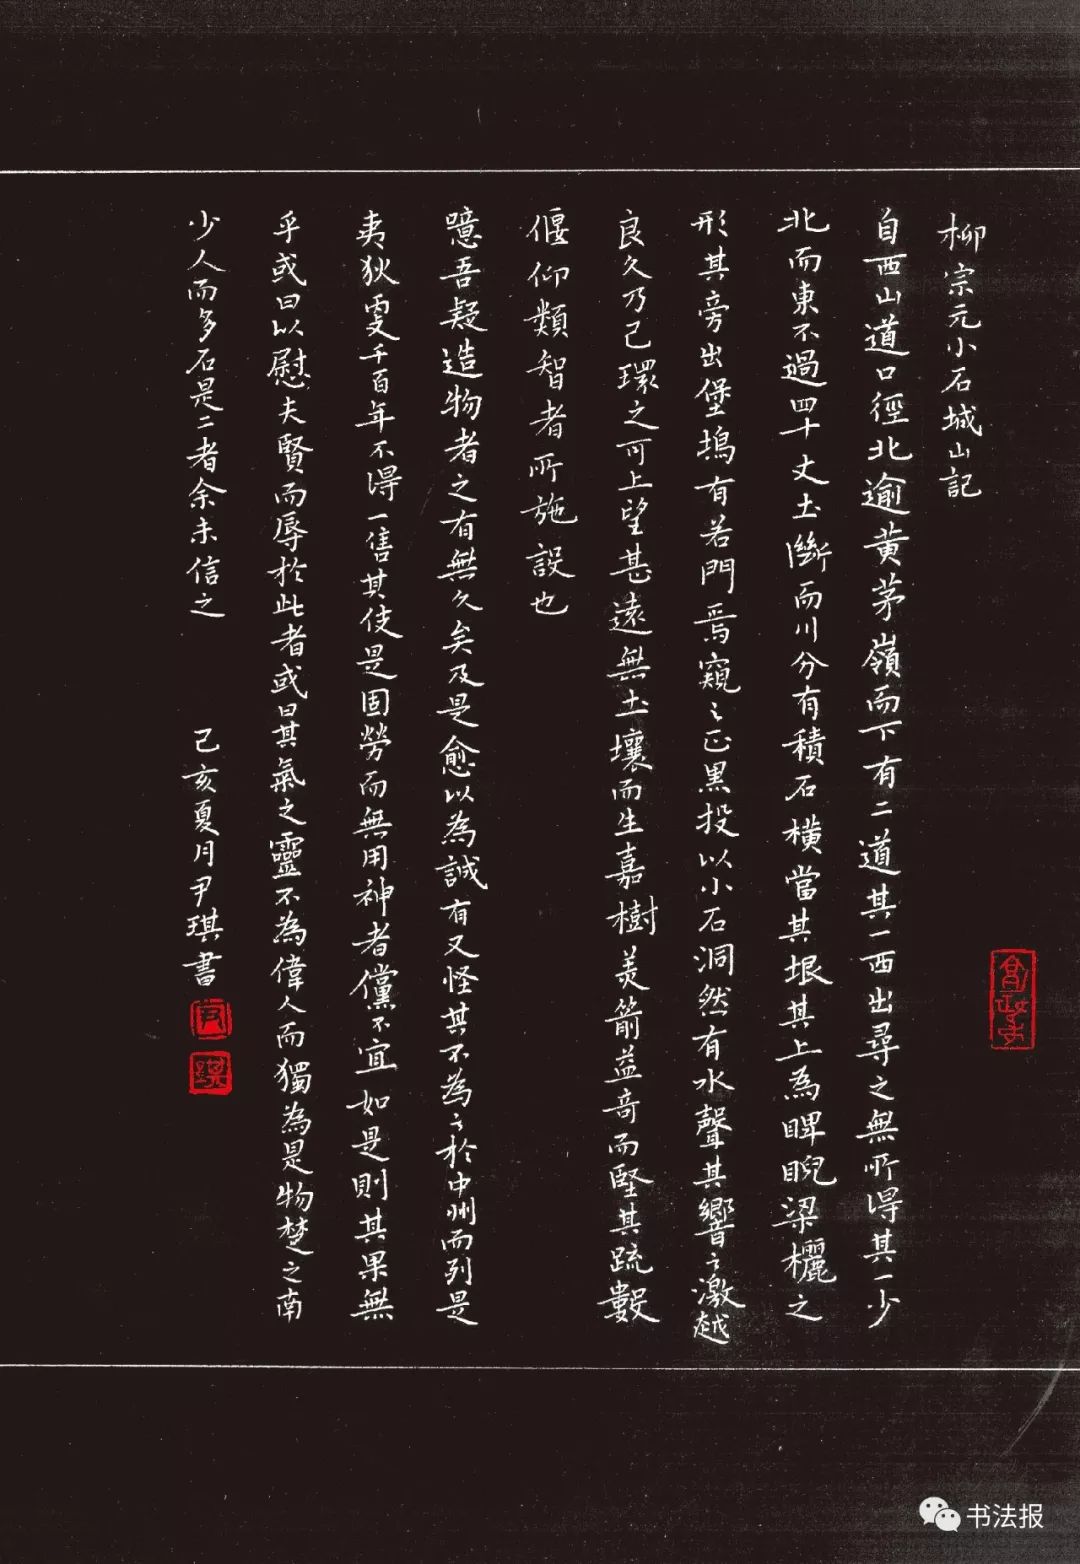 柳宗元小石城山記
自西山道口徑北逾黃茅嶺而下有二道其一西出尋之無所得其一少
北而東不過四十丈土斷而川分有積石橫當其垠其上為睥睨梁欐之
形其旁出堡塢有若門焉窺之正黑投以小石洞然有水聲其響之激越
良久乃已環之可上望甚遠無土壤而生嘉樹美箭益奇而堅其疏數
偃仰類智者所施設也
噫吾疑造物者之有無久矣及是愈以為誠有又怪其不為之於中州而列是
夷狄更千百年不得一售其伎是固勞而無用神者儻不宜如是則其果無
乎或曰以慰夫賢而辱於此者或曰其氣之靈不為偉人而獨為是物楚之南
少人而多石是二者余未信之 己亥夏月尹琪書
尹
琪
书法报